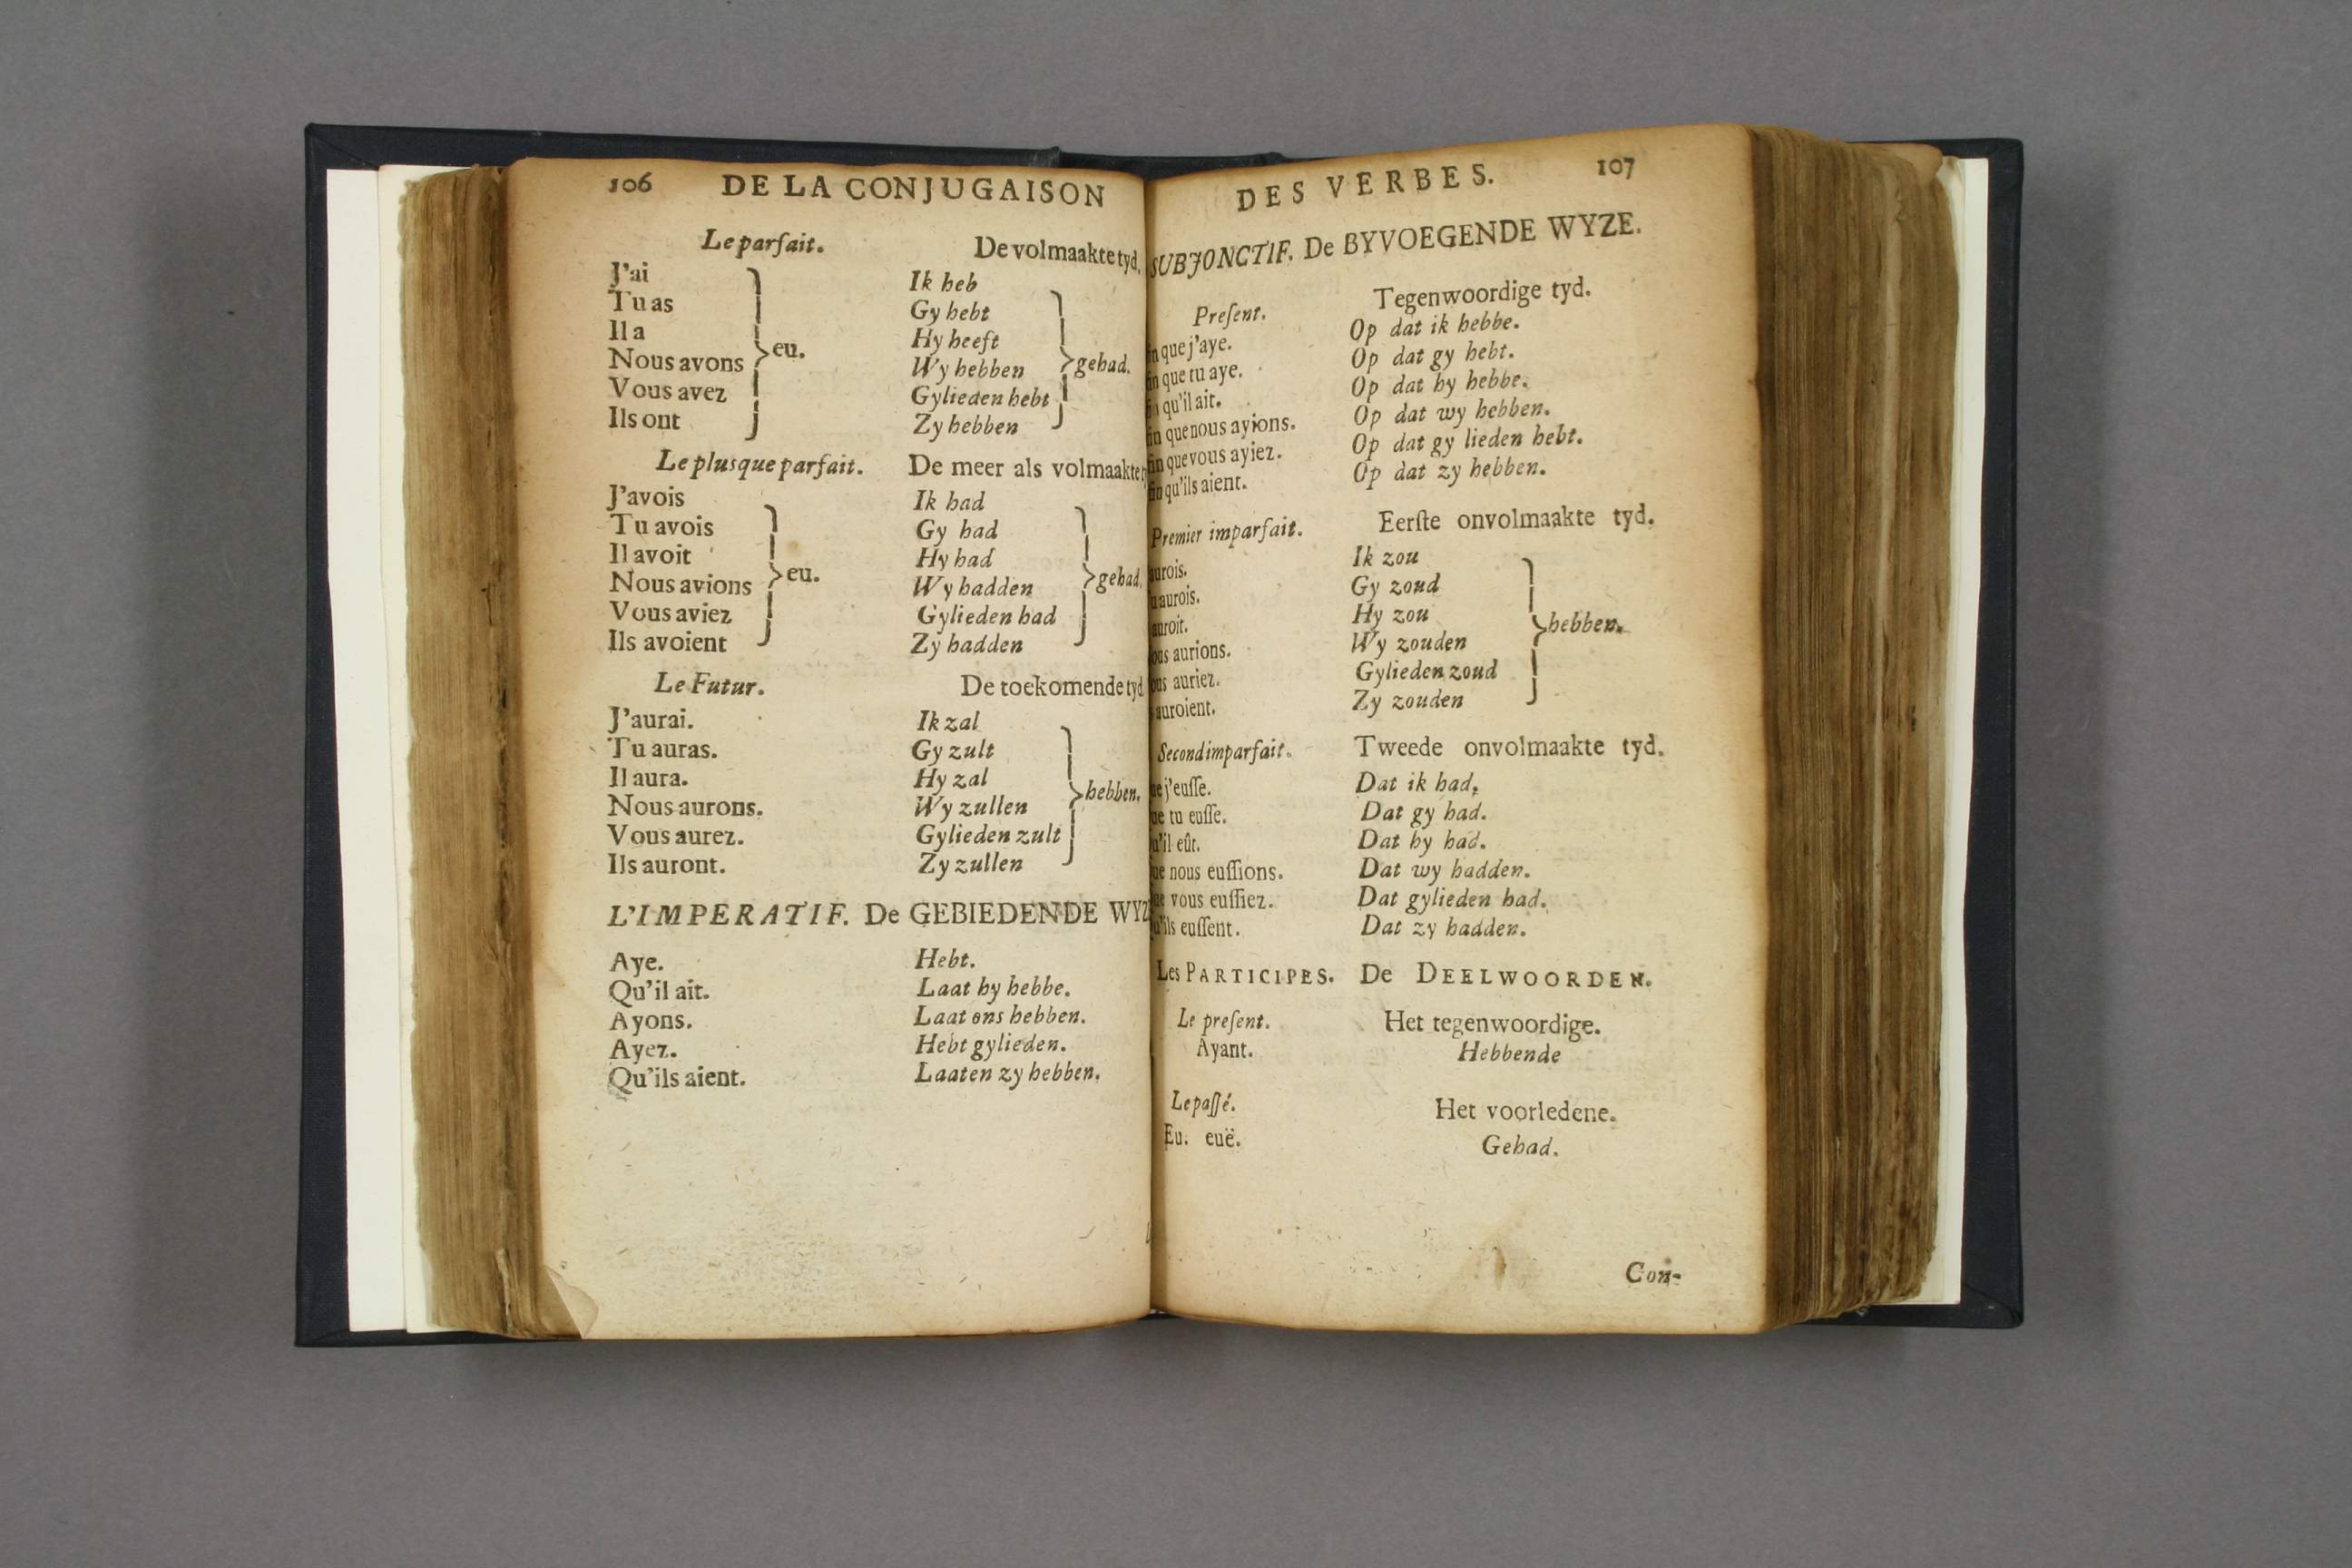 106 DE LA CONJUGAISON
Le parfait. De volmaakte tyd.
J'ai Ik heb
Tu as Gy hebt
Il a Hy heeft
eu. gehad.
Nous avons Wy hebben
Vous avez Gylieden hebt
Ils ont Zy hebben
Le plus que parfait. De meer als volmaakte
J'avois Ik had
Tu avois Gy had
Il avoit Hy had
eu. gehad.
Nous avions Wy hadden
Vous aviez Gylieden had
Ils avoient Zy hadden
Le Futur. De toekomende tyd
J'aurai. Ik zal
Tu auras. Gy zult
Il aura. Hy zal
hebben.
Nous aurons. Wy zullen
Vous aurez. Gylieden zult
Ils auront. Zy zullen
L'IMPERATIF. De GEBIEDENDE WYZ
Aye. Hebt.
Qu'il ait. Laat hy hebbe.
Ayons. Laat ons hebben.
Ayez. Hebt gylieden.
Qu'ils aient. Laaten zy hebben.
DES VERBES. 107
SUBJONCTIF. De BYVOEGENDE WYZE.
Preſent. Tegenwoordige tyd.
que j'aye. Op dat ik hebbe.
que tu aye. Op dat gy hebt.
qu'il ait. Op dat hy hebbe.
que nous ayions. Op dat wy hebben.
que vous ayiez. Op dat gy lieden hebt.
qu'ils aient. Op dat zy hebben.
Premier imparfait. Eerſte onvolmaakte tyd.
urois. Ik zou
aurois. Gy zoud
uroit. Hy zou
hebben.
aurions. Wy zouden
auriez. Gylieden zoud
auroient. Zy zouden
Second imparfait. Tweede onvolmaakte tyd.
j'euſſe. Dat ik had.
tu euſſe. Dat gy had.
u'il eût. Dat hy had.
nous euſſions. Dat wy hadden.
vous euſſiez. Dat gylieden had.
u'ils euſſent. Dat zy hadden.
Les PARTICIPES. De DEELWOORDEN.
Le preſent. Het tegenwoordige.
Ayant. Hebbende
Le paſſé. Het voorledene.
Eu. euë. Gehad.
Con-